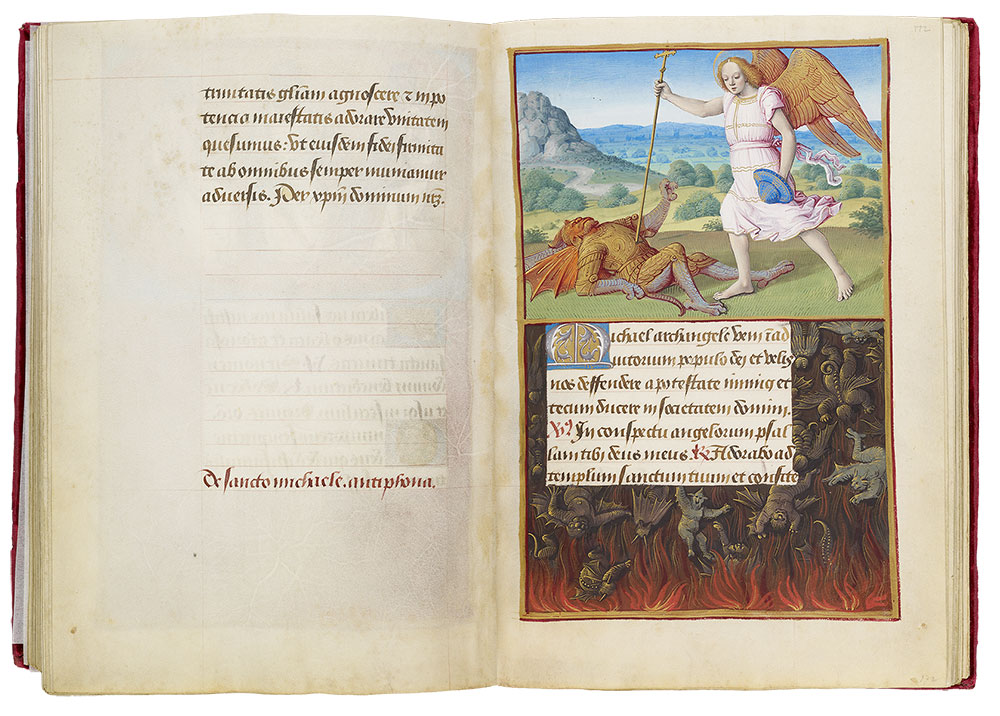 trinitatis gl̄iam agnoscere ⁊ in po
tencia maiestatis adorare vnitatem
quesumus: vt eiusdem fidei firmita
te ab omnibus semper muniamur
aduersis. Per xp̄m dominum
De sancto michaele. antiphona.
172
Michael archangele veni in ad
iutorium populo dei et velis
nos deffendere a potestate inimici et
tecum ducere in societatem domini.
℣ In conspectu angelorum psal
lam tibi deus meus ℟ Adorabo ad
templum sanctum tuum et confite
172